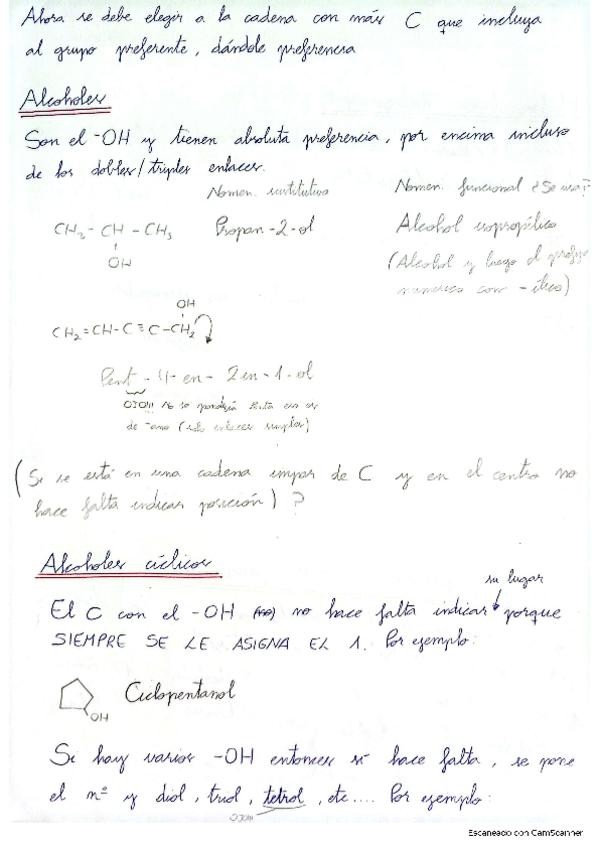 Ahora se debe elegir a la cadena con más C que incluya
al grupo preferente, dándole preferencia
Alcoholes
Son el -OH y tienen absoluta preferencia, por encima incluso
de los dobles/triples enlaces.
Nomen. sustitutiva Nomen. funcional ¿Se usa?
CH3 - CH - CH3 Propan-2-ol Alcohol isopropílico
OH (Alcohol y luego el prefijo
numérico con -ílico)
OH
CH2=CH-C≡C-CH2
Pent-4-en-2in-1-ol
OJO!!! No se
de -ano (solo enlaces simples)
(Si se está en una cadena impar de C y en el centro no
hace falta indicar posición) ?
Alcoholes cíclicos
su lugar
El C con el -OH (no) no hace falta indicar porque
SIEMPRE SE LE ASIGNA EL 1. Por ejemplo:
Ciclopentanol
OH
Si hay varios -OH entonces sí hace falta, se pone
el nº y diol, triol, tetrol, etc.... Por ejemplo:
OJO!!!
Escaneado con CamScanner